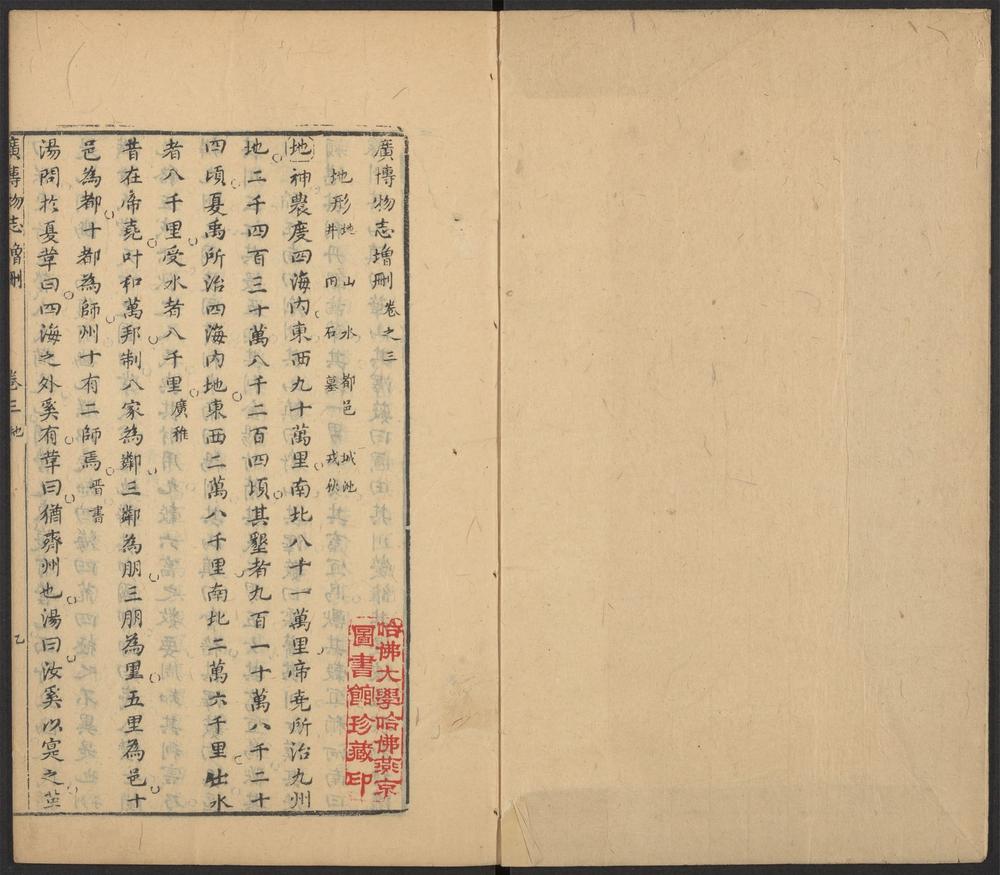 廣博物志增刪 卷之三
地形 地 山 水 都邑 城池
井 丙 石 墓 戎狄
地 神農度四海內東西九十萬里南北八十一萬里帝堯所治九州
地二千四百三十萬八千二百四頃其墾者九百一十萬八千二十
四頃夏禹所治四海內地東西二萬八千里南北二萬六千里出水
者八千里受水者八千里 廣雅
昔在帝堯叶和萬邦制八家為鄰三鄰為朋三朋為里五里為邑十
邑為都十都為師州十有二師焉 晋書
湯問於夏革曰四海之外奚有革曰猶齊州也湯曰汝奚以寔之革
廣博物志增刪 卷三 地 乙
哈佛大學哈佛燕京
圖書館珍藏印